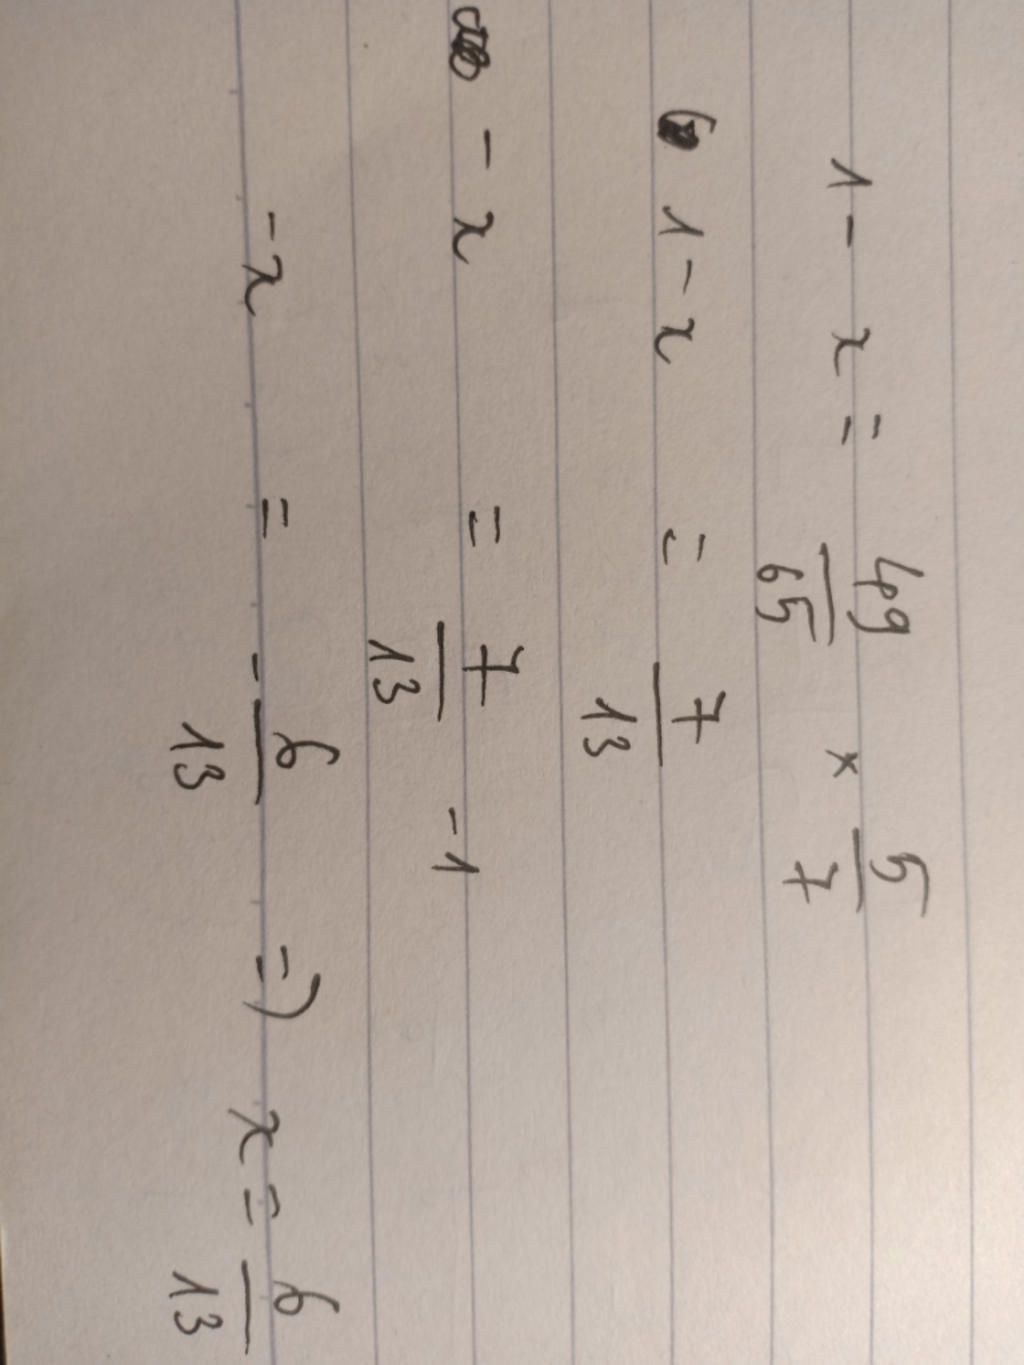 1 - x = 49/65 × 5/7
1 - x = 7/13
- x = 7/13 - 1
- x = - 6/13 => x = 6/13